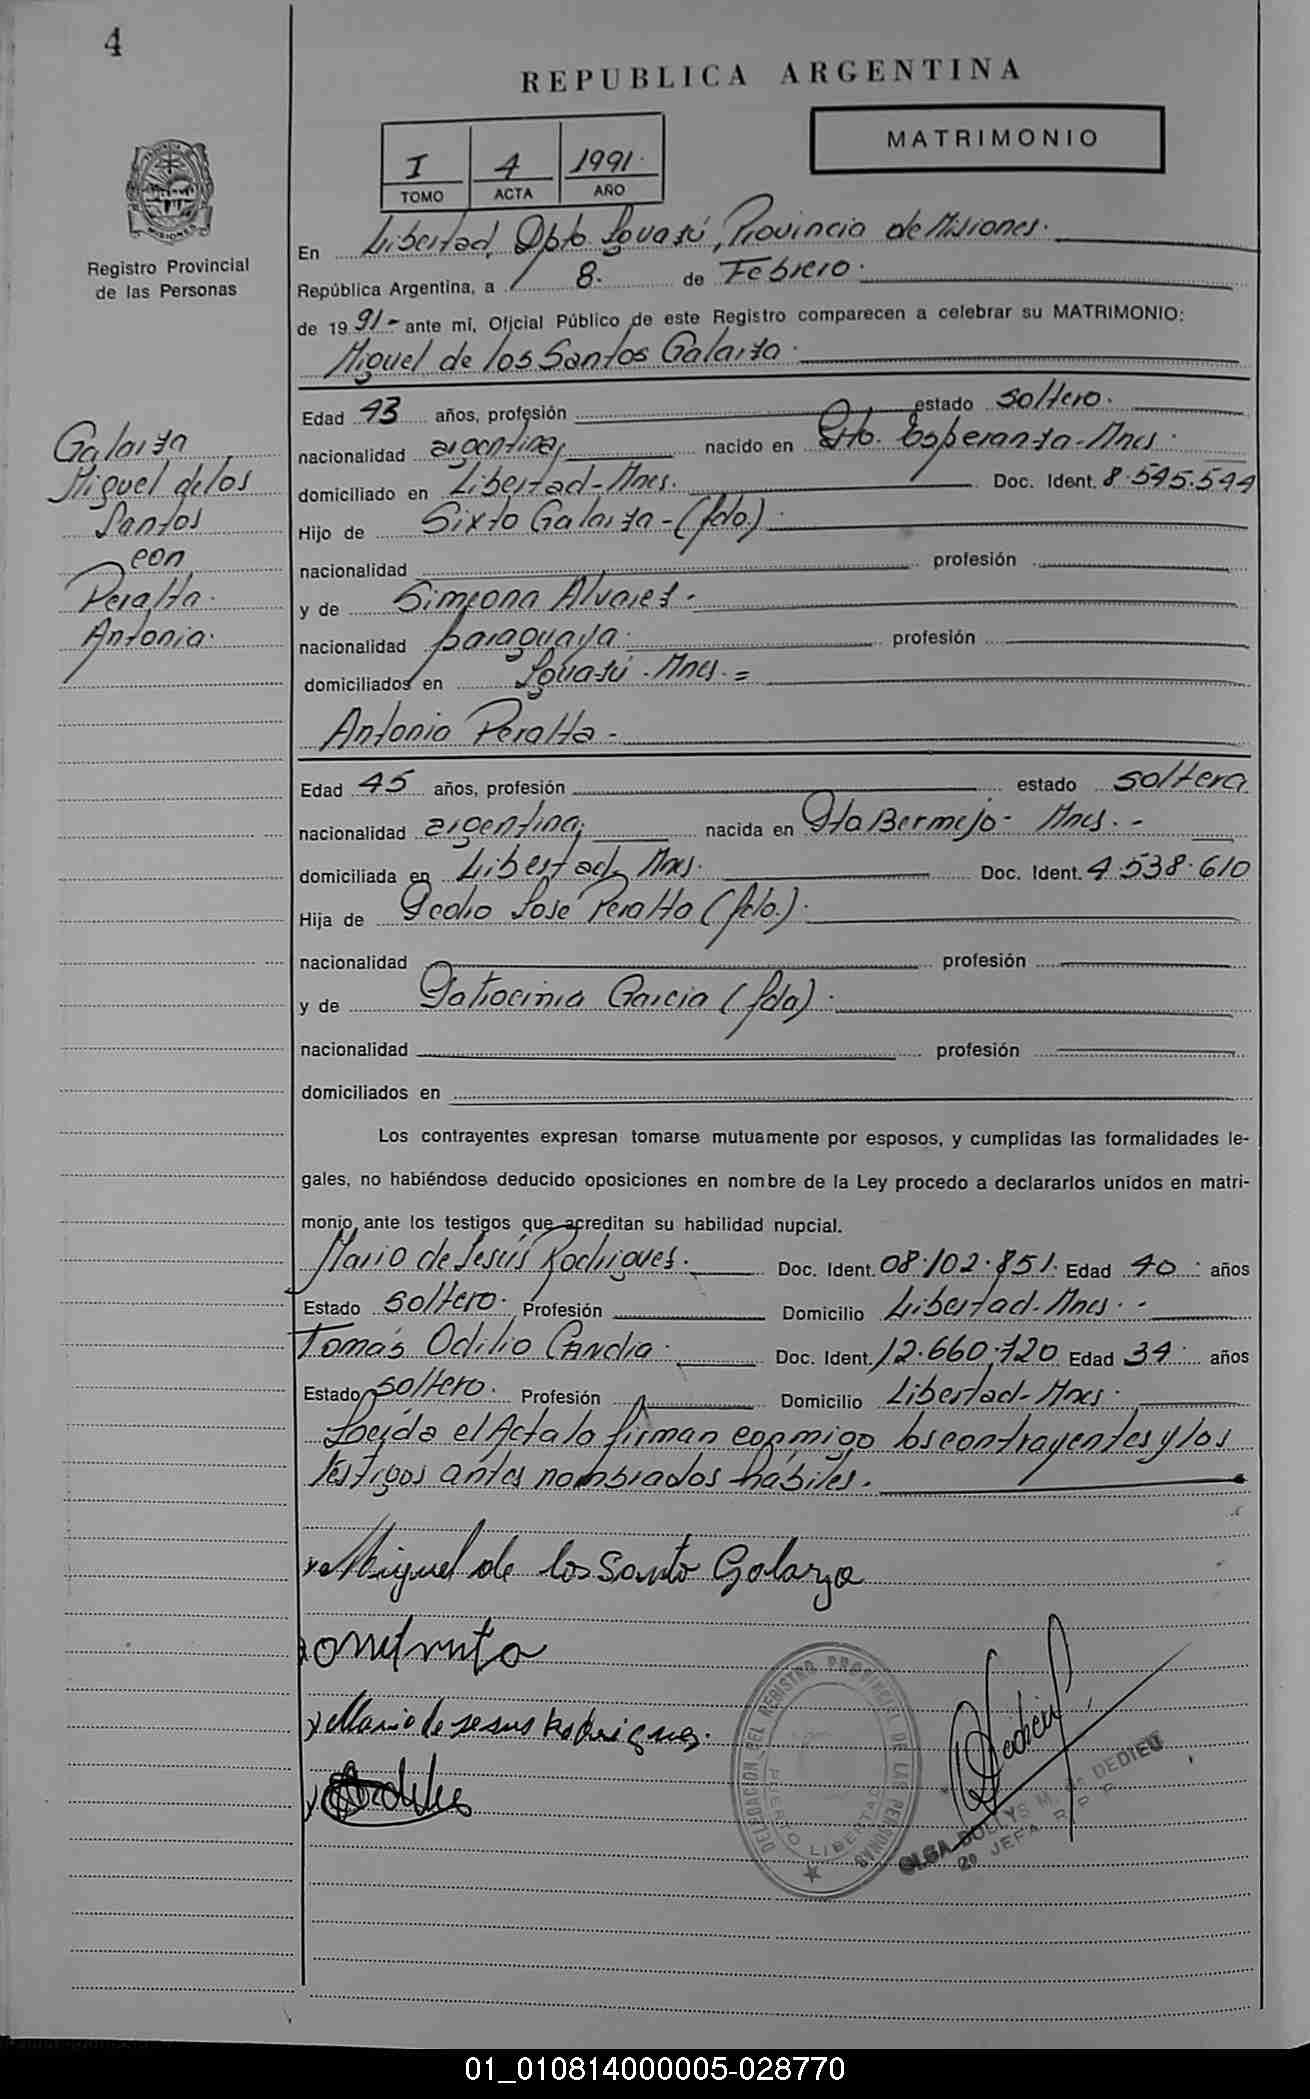 4
REPUBLICA ARGENTINA
MATRIMONIO
I 4 1991.
TOMO ACTA AÑO
MISIONES
Registro Provincial
de las Personas
En Libertad, Dpto Iguazú, Provincia de Misiones.
República Argentina, a 8. de Febrero.
de 19 91- ante mí, Oficial Público de este Registro comparecen a celebrar su MATRIMONIO:
Miguel de los Santos Galarza.
Edad 43 años, profesión estado soltero.
nacionalidad argentina, nacido en Pto. Esperanza-Mnes.
domiciliado en Libertad-Mnes. Doc. Ident. 8.545.544
Hijo de Sixto Galarza-(fdo).
nacionalidad profesión
y de Simeona Alvarez.
nacionalidad paraguaya. profesión
domiciliados en Iguazú-Mnes.=
Galarza
Miguel de los
Santos
con
Peralta.
Antonia.
Antonia Peralta-
Edad 45 años, profesión estado soltera
nacionalidad argentina; nacida en Pto Bermejo- Mnes.-
domiciliada en Libertad, Mnes. Doc. Ident. 4.538.610
Hija de Pedro José Peralta (fdo.).
nacionalidad profesión
y de Patrocinia Garcia (fda).
nacionalidad profesión
domiciliados en
Los contrayentes expresan tomarse mutuamente por esposos, y cumplidas las formalidades le-
gales, no habiéndose deducido oposiciones en nombre de la Ley procedo a declararlos unidos en matri-
monio ante los testigos que acreditan su habilidad nupcial.
Mario de Jesús Rodriguez. Doc. Ident. 08.102.851. Edad 40 años
Estado soltero. Profesión Domicilio Libertad-Mnes.-
Tomás Odilio Candia. Doc. Ident. 12.660.720 Edad 34 años
Estado soltero. Profesión Domicilio Libertad-Mnes.
Leída el Acta lo firman conmigo los contrayentes y los
testigos antes nombrados hábiles.
x Miguel de los Santo Galarza
x Mario de Jesus Rodriguez.
DELEGACION DEL REGISTRO PROVINCIAL DE LAS PERSONAS
PUERTO LIBERTAD
OLGA DOLLYS M. de DEDIEU
2º JEFA R. P. P.
01_010814000005-028770